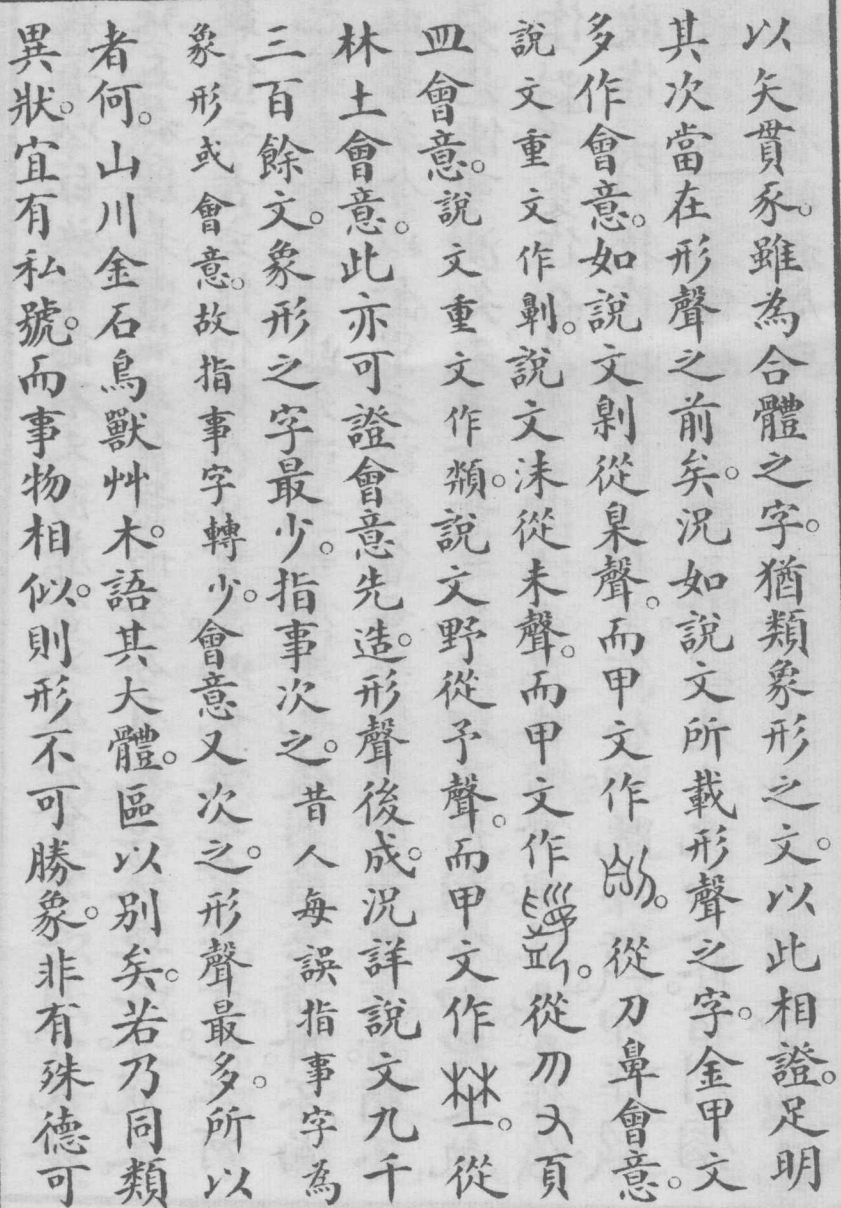 以矢貫豕。雖為合體之字。猶類象形之文。以此相證。足明
其次當在形聲之前矣。況如說文所載形聲之字。金甲文
多作會意。如說文劓從臬聲。而甲文作。從刀鼻會意。
說文重文作劓。說文沬從未聲。而甲文作。從𠬞頁
皿會意。說文重文作頮。說文野從予聲。而甲文作埜。從
林土會意。此亦可證會意先造。形聲後成。況詳說文九千
三百餘文。象形之字最少。指事次之。昔人每誤指事字為
象形或會意。故指事字轉少。會意又次之。形聲最多。所以
者何。山川金石鳥獸艸木。語其大體。區以別矣。若乃同類
異狀。宜有私號。而事物相似。則形不可勝象。非有殊德可